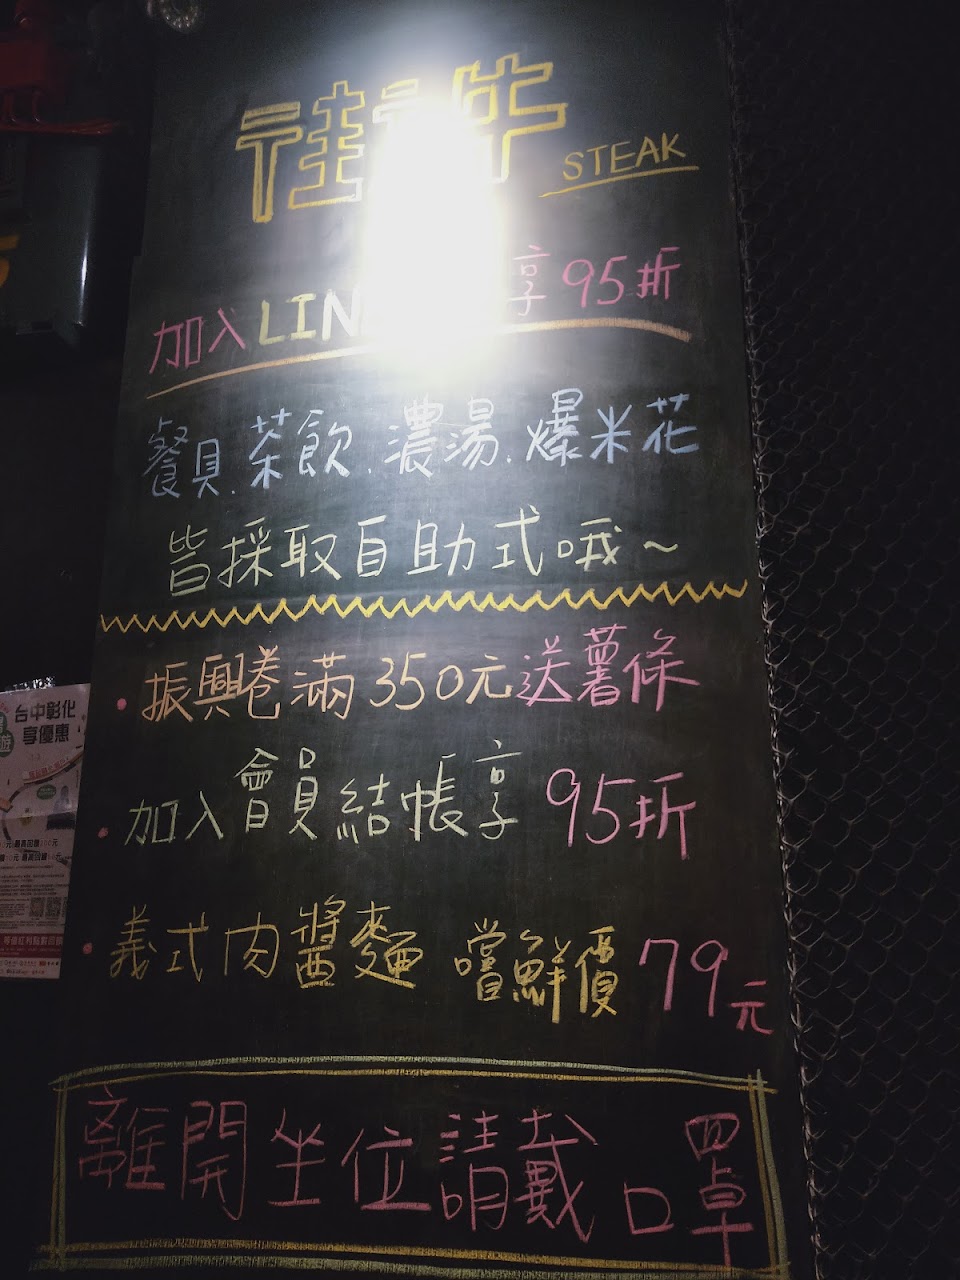 佳 牛
STEAK
加入 LIN 享95折
餐具.茶飲.濃湯.爆米花
皆採取自助式哦~
·振興卷滿350元送薯條
·加入會員結帳享95折
·義式肉醬麵 嚐鮮價79元
離開坐位請戴口罩
台中彰化
享優惠